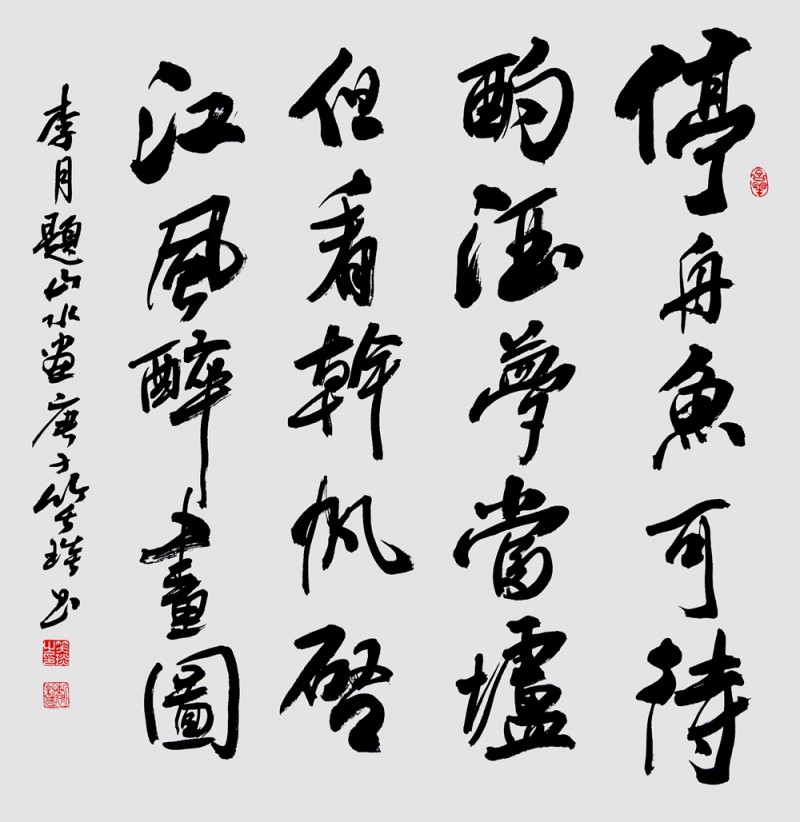 停舟魚可待
酌酒夢當壚
但看幹帆啓
江風醉畫圖
李月題山水畫庚子